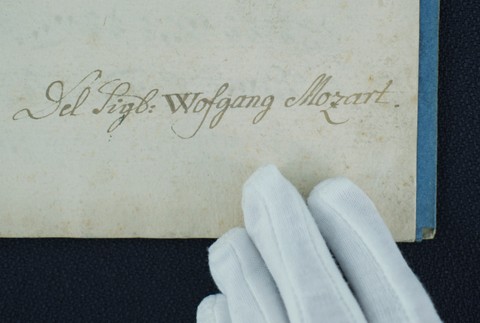 Del Sigb: Wofgang Mozart.